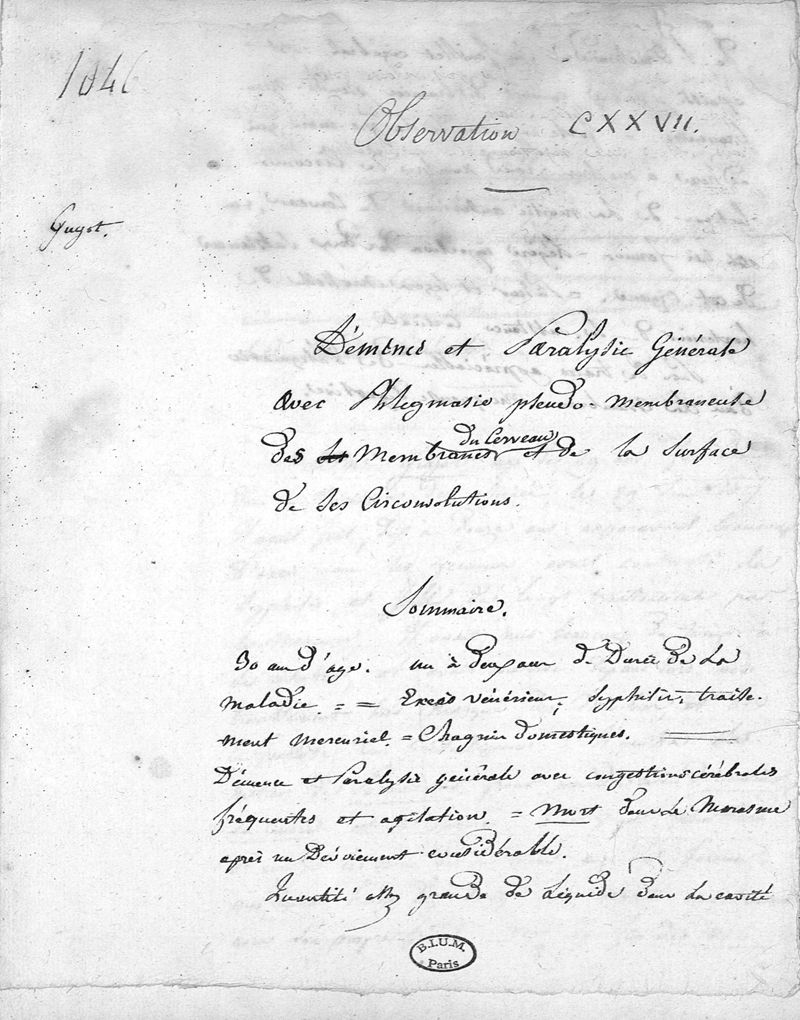 1046
Observation CXXVII.
Guyot.
Démence et Paralysie Générale
avec Phlegmasie pseudo-membraneuse
du Cerveau
des Membranes et de la surface
de ses Circonvolutions.
Sommaire.
30 ans d'age. un à deux ans de Durée de La
maladie. = = Excès vénériens, Syphilis, traite-
ment mercuriel. = Chagrins domestiques.
Démence et Paralysie générale avec congestions cérébrales
fréquentes et agitation. = Mort dans Le Marasme
après un Dévoiement considérable.
Quantité grande de Liquide dans La cavité
B.I.U.M.
Paris